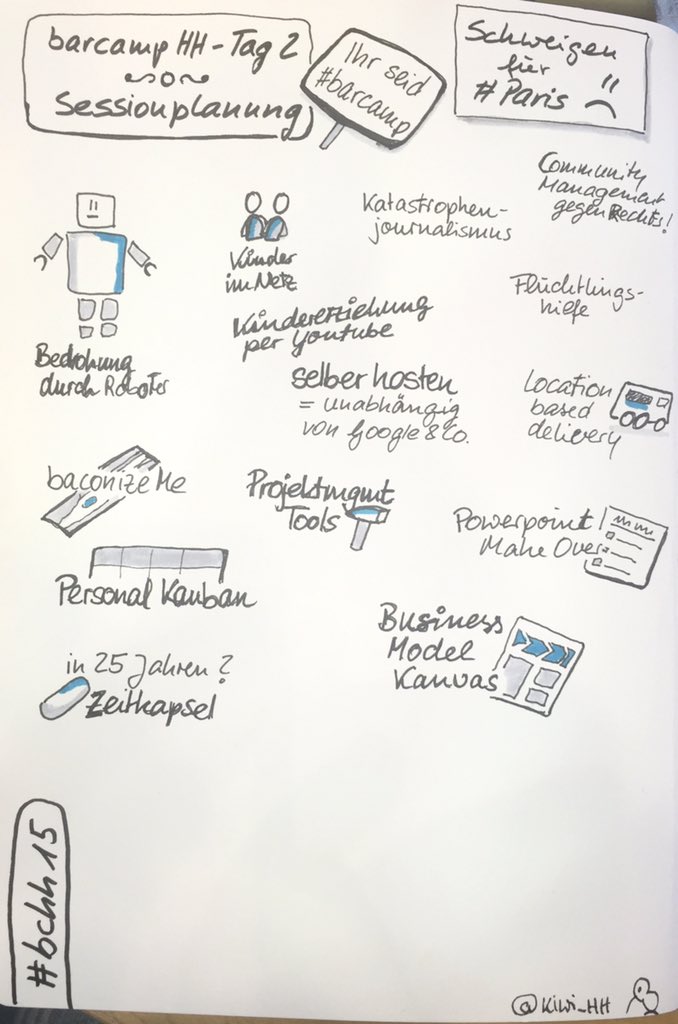 barcamp HH - Tag 2
Sessionplanung
Ihr seid
#barcamp
Schweigen
für
#Paris
Community
Management
gegen Rechts!
Katastrophen-
journalismus
Kinder
im Netz
Flüchtlings-
hilfe
Kindererziehung
per Youtube
Bedrohung
durch Roboter
selber hosten
= unabhängig
von Google & Co.
Location
based
delivery
baconize Me
Projektmgmt
Tools
Powerpoint
Make Over
Personal Kanban
Business
Model
Kanvas
in 25 Jahren?
Zeitkapsel
#bchh15
@kiwi_HH